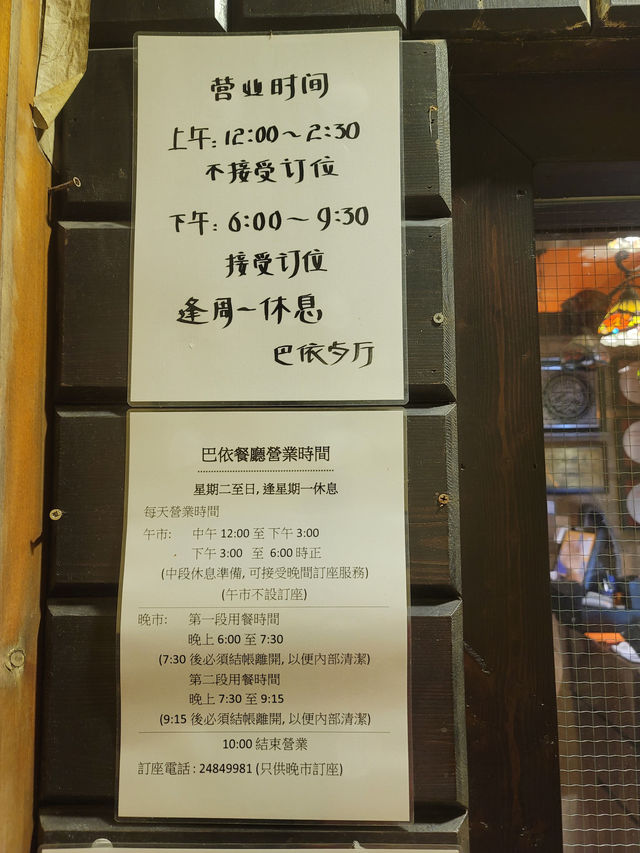 营业时间
上午: 12:00～2:30
不接受订位
下午: 6:00～9:30
接受订位
逢周一休息
巴依歺厅
巴依餐廳營業時間
星期二至日, 逢星期一休息
每天營業時間
午市: 中午 12:00 至 下午 3:00
下午 3:00 至 6:00 時正
(中段休息準備, 可接受晚間訂座服務)
(午市不設訂座)
晚市: 第一段用餐時間
晚上 6:00 至 7:30
(7:30 後必須結帳離開, 以便內部清潔)
第二段用餐時間
晚上 7:30 至 9:15
(9:15 後必須結帳離開, 以便內部清潔)
10:00 結束營業
訂座電話 : 24849981 (只供晚市訂座)